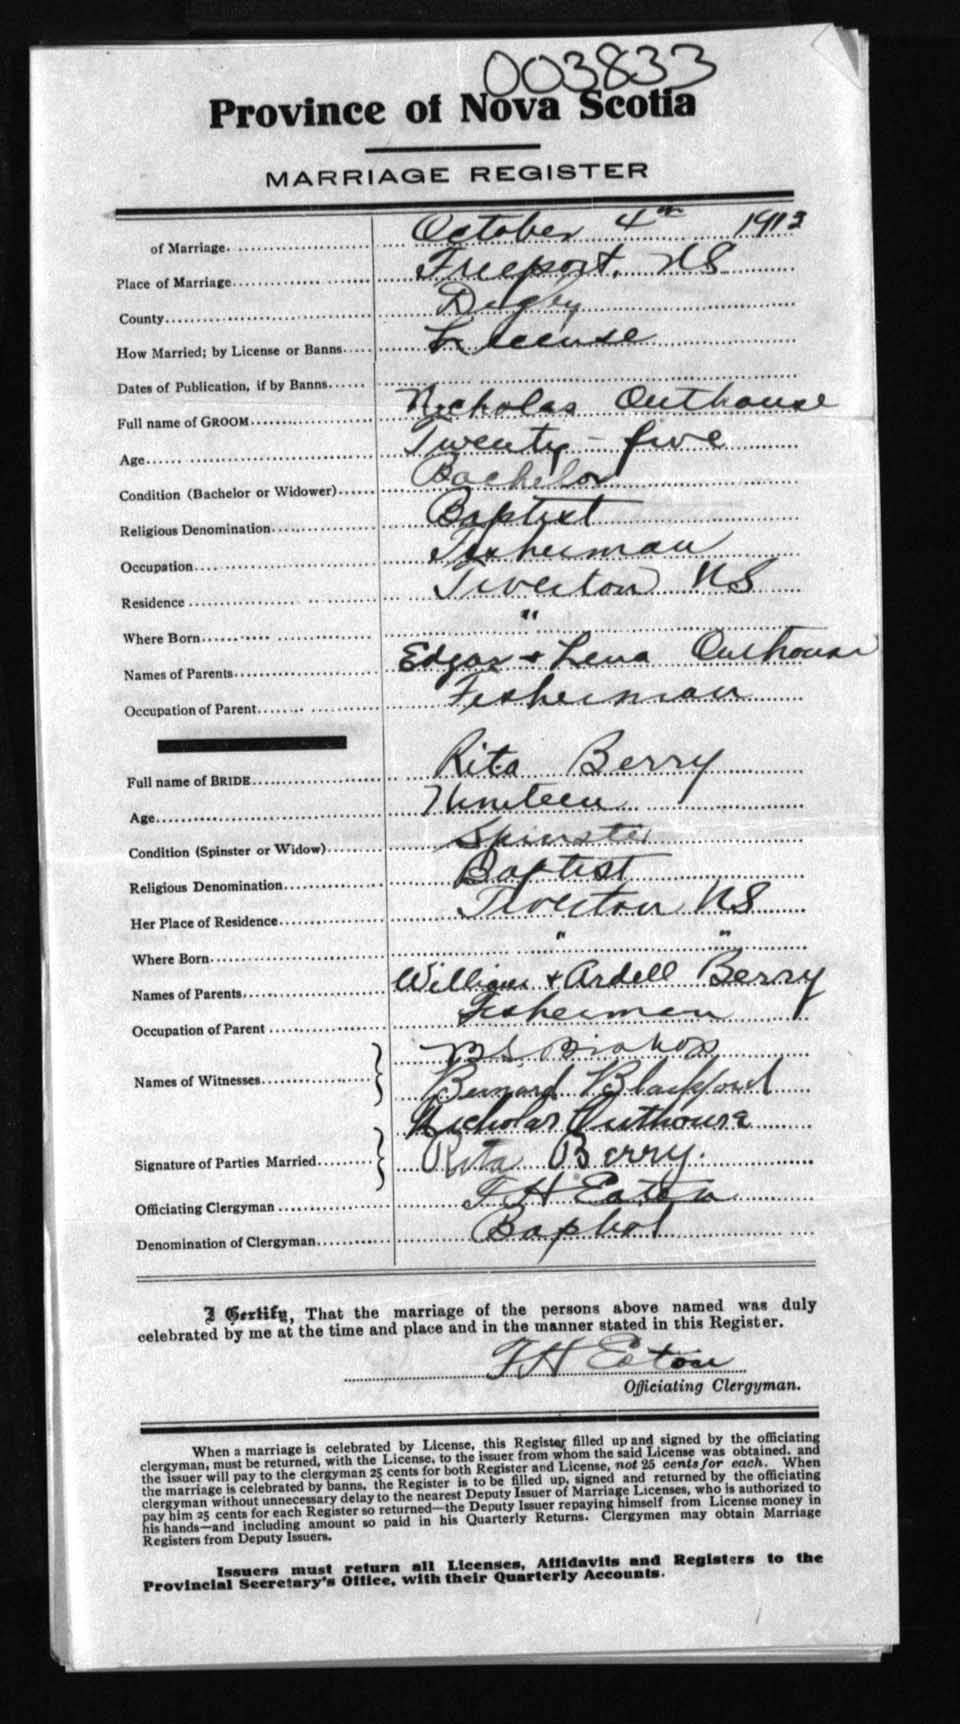 003833
Province of Nova Scotia
MARRIAGE REGISTER
of Marriage October 4th 1913
Place of Marriage Freeport, NS
County Digby
How Married; by License or Banns License
Dates of Publication, if by Banns
Full name of GROOM Nicholas Outhouse
Age Twenty-five
Condition (Bachelor or Widower) Bachelor
Religious Denomination Baptist
Occupation Fisherman
Residence Tiverton NS
Where Born "
Names of Parents Edgar + Lena Outhouse
Occupation of Parent Fisherman
Full name of BRIDE Rita Berry
Age Nineteen
Condition (Spinster or Widow) Spinster
Religious Denomination Baptist
Her Place of Residence Tiverton NS
Where Born " "
Names of Parents William + Ardell Berry
Occupation of Parent Fisherman
Names of Witnesses
Bernard Blackford
Nicholas Outhouse
Signature of Parties Married Rita Berry.
Officiating Clergyman F H Eaton
Denomination of Clergyman Baptist
I Certify, That the marriage of the persons above named was duly
celebrated by me at the time and place and in the manner stated in this Register.
F H Eaton
Officiating Clergyman.
When a marriage is celebrated by License, this Register filled up and signed by the officiating
clergyman, must be returned, with the License, to the issuer from whom the said License was obtained, and
the issuer will pay to the clergyman 25 cents for both Register and License, not 25 cents for each. When
the marriage is celebrated by banns, the Register is to be filled up, signed and returned by the officiating
clergyman without unnecessary delay to the nearest Deputy Issuer of Marriage Licenses, who is authorized to
pay him 25 cents for each Register so returned—the Deputy Issuer repaying himself from License money in
his hands—and including amount so paid in his Quarterly Returns. Clergymen may obtain Marriage
Registers from Deputy Issuers.
Issuers must return all Licenses, Affidavits and Registers to the
Provincial Secretary's Office, with their Quarterly Accounts.